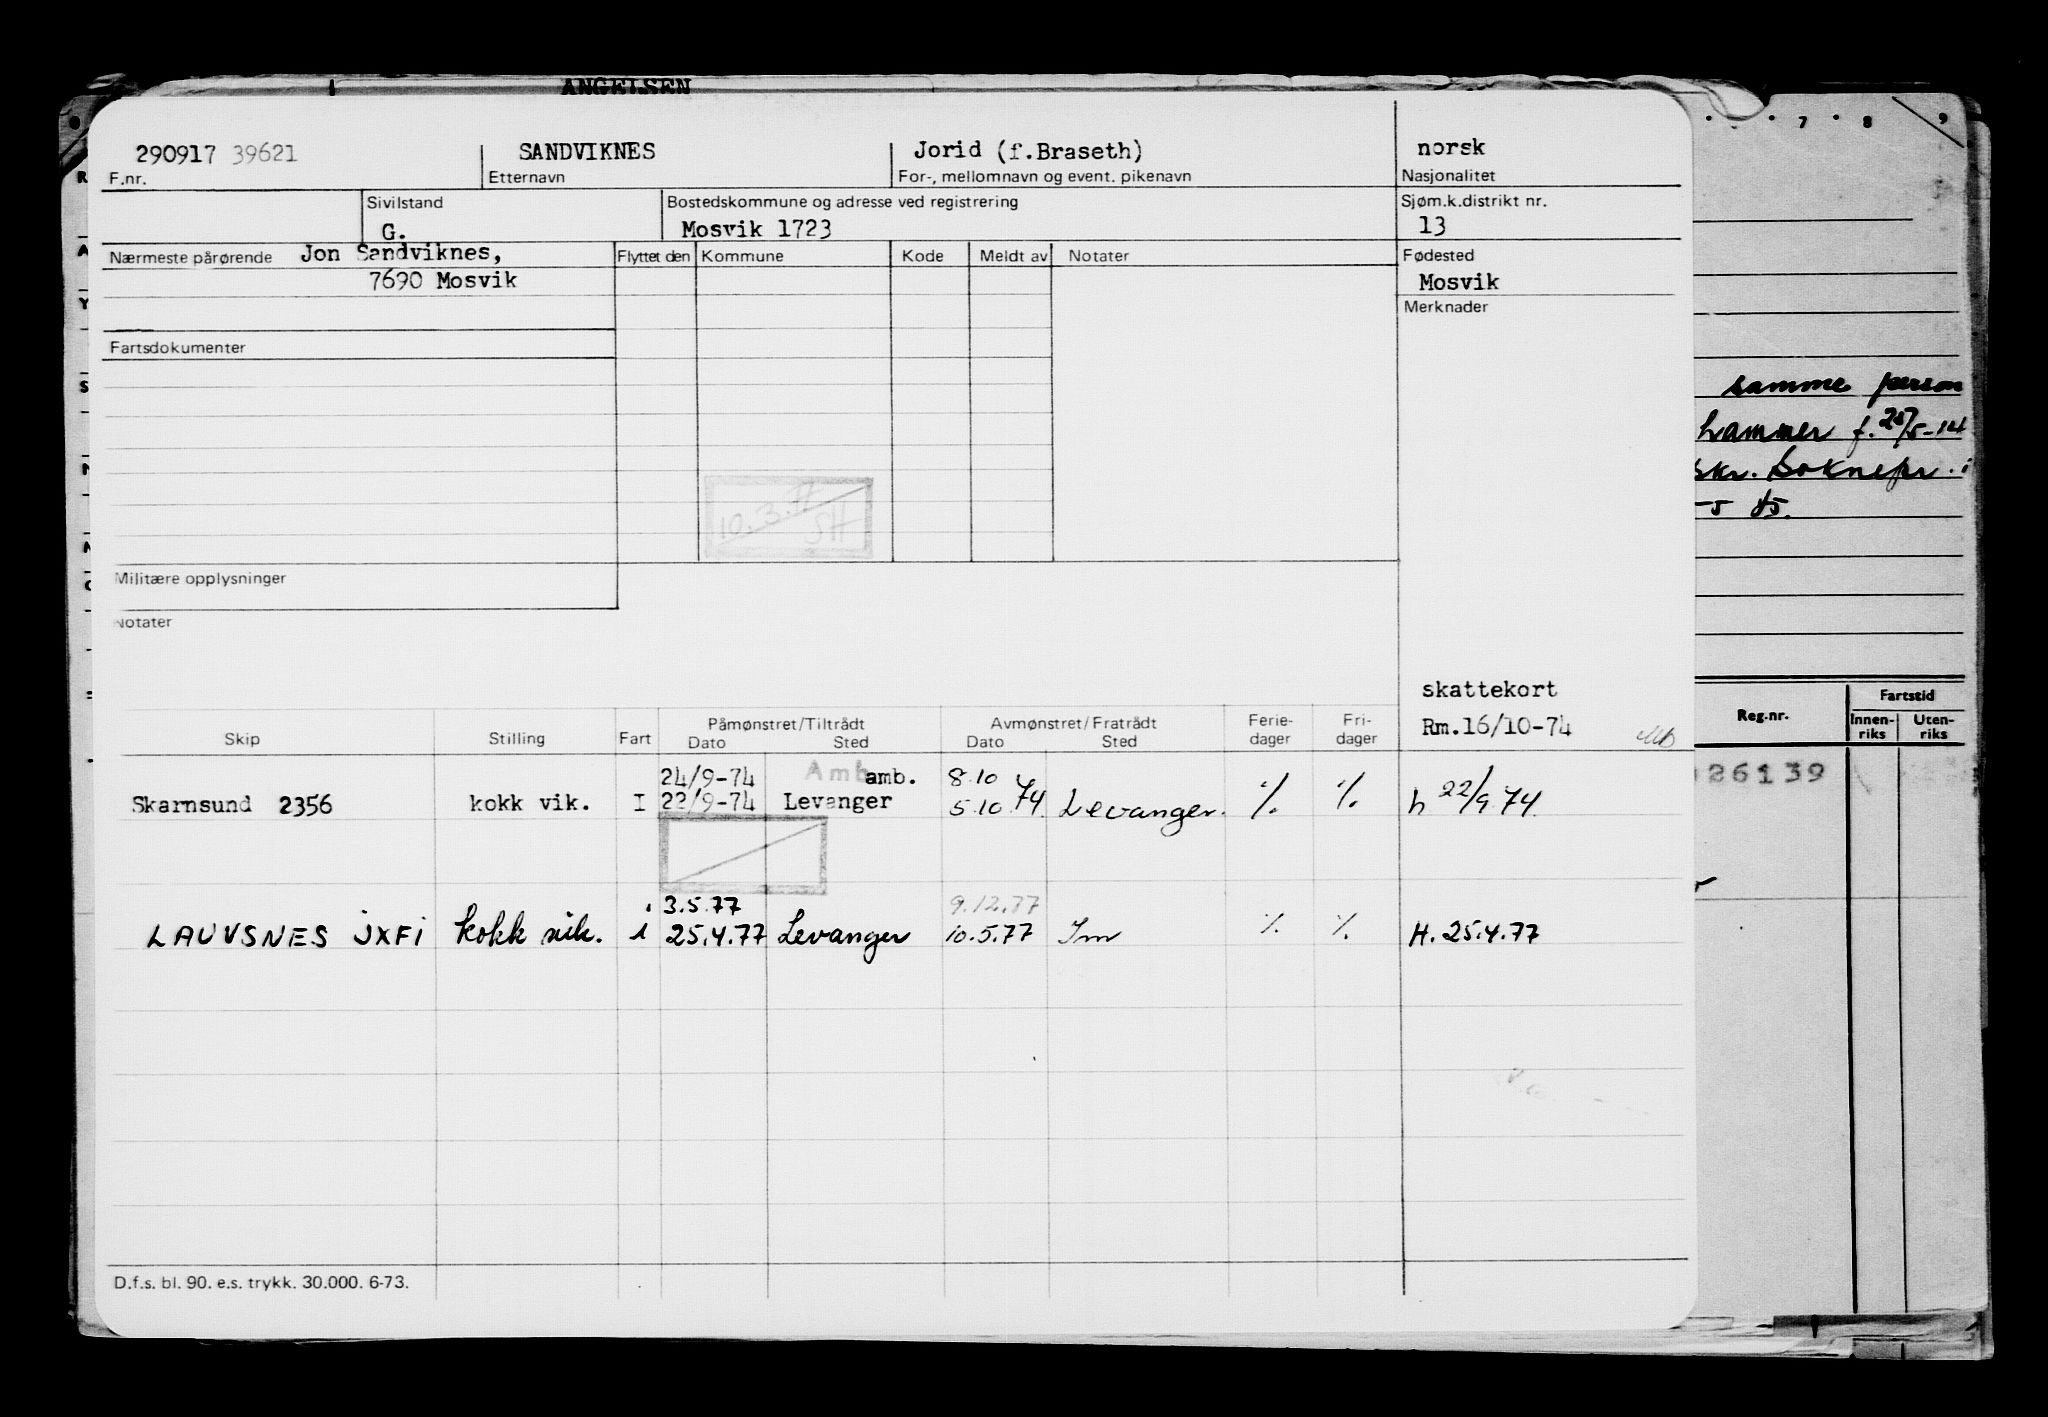 ANGELSEN
290917 39621 SANDVIKNES Jorid (f.Braseth) norsk
F.nr. Etternavn For-, mellomnavn og event. pikenavn Nasjonalitet
Sivilstand Bostedskommune og adresse ved registrering Sjøm.k.distrikt nr.
G. Mosvik 1723 13
Nærmeste pårørende Jon Sandviknes, Flyttet den Kommune Kode Meldt av Notater Fødested
7690 Mosvik Mosvik
Merknader
Fartsdokumenter
10.3.77
SH
Militære opplysninger
Notater
skattekort
Rm.16/10-74
Skip Stilling Fart Påmønstret/Tiltrådt Dato Sted Avmønstret/Fratrådt Dato Sted Ferie-dager Fri-dager
24/9-74 Amb amb. 8.10
Skarnsund 2356 kokk vik. I 22/9-74 Levanger 5.10 74. Levanger. % % h 22/9 74.
3.5.77 9.12.77
LAUVSNES JXFI kokk vik. i 25.4.77 Levanger 10.5.77 Im % % H. 25.4.77
D.f.s. bl. 90. e.s. trykk. 30.000. 6-73.
7 8 9
samme person
hammer f. 25/5-14
skr. Soknepr. i
Reg.nr. Fartstid
Innen-riks Uten-riks
26139